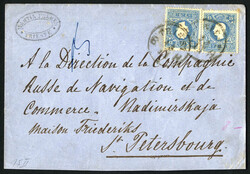 A la Direction de la Compagnie
Russe de Navigation et de
Commerce - Wadimirskaja
maison Friederiks
St Petersbourg.